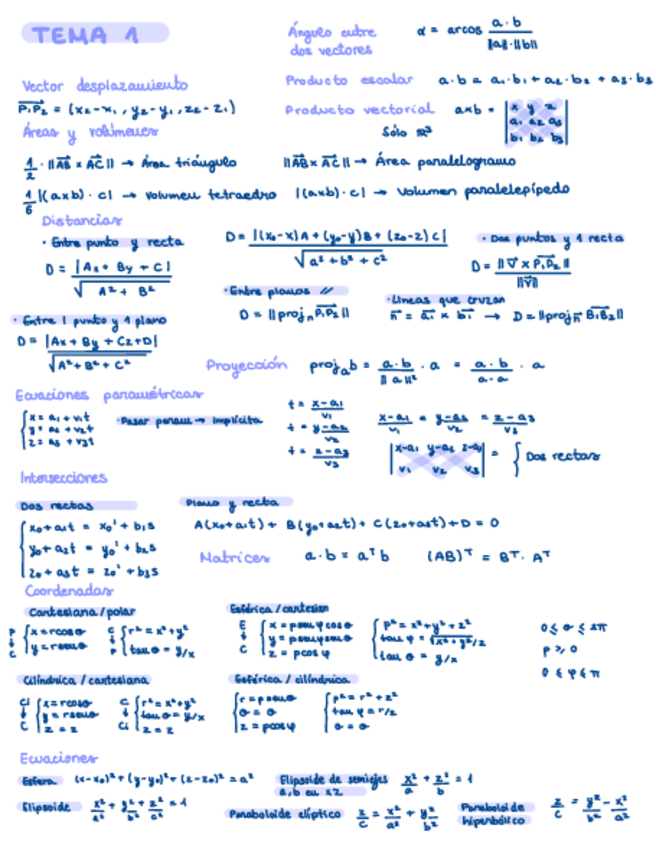 TEMA 1
Ángulo entre dos vectores α = arcos a·b / ||a||·||b||
Vector desplazamiento
P₁P₂ = (x₂-x₁, y₂-y₁, z₂-z₁)
Producto escalar a·b = a₁·b₁ + a₂·b₂ + a₃·b₃
Producto vectorial a×b = | x y z |
| a₁ a₂ a₃ |
| b₁ b₂ b₃ |
Sólo ℝ³
Áreas y volúmenes
1/2 · ||AB × AC|| → Área triángulo
||AB × AC|| → Área paralelogramo
1/6 |(a×b)·c| → volumen tetraedro
|(a×b)·c| → Volumen paralelepípedo
Distancias
· Entre punto y recta
D = |Ax + By + C| / √A² + B²
D = |(x₀-x)A + (y₀-y)B + (z₀-z)C| / √a² + b² + c²
· Dos puntos y 1 recta
D = ||V × P₁P₂|| / ||V||
· Entre planos //
D = ||projₙ P₁P₂||
· Líneas que cruzan
n = a₁ × b₁ → D = ||projₙ B₁B₂||
· Entre 1 punto y 1 plano
D = |Ax + By + Cz + D| / √A² + B² + C²
Proyección projₐb = a·b / ||a||² · a = a·b / a·a · a
Ecuaciones paramétricas
x = a₁ + v₁t
y = a₂ + v₂t
z = a₃ + v₃t
· Pasar param → implícita
t = x-a₁ / v₁
t = y-a₂ / v₂
t = z-a₃ / v₃
x-a₁ / v₁ = y-a₂ / v₂ = z-a₃ / v₃
| x-a₁ y-a₂ z-a₃ |
| v₁ v₂ v₃ | = { Dos rectas
Intersecciones
Dos rectas
x₀+a₁t = x₀' + b₁s
y₀+a₂t = y₀' + b₂s
z₀+a₃t = z₀' + b₃s
Plano y recta
A(x₀+a₁t) + B(y₀+a₂t) + C(z₀+a₃t) + D = 0
Matrices a·b = aᵀb (AB)ᵀ = Bᵀ·Aᵀ
Coordenadas
Cartesiana/polar
P ↓ C { x = rcosθ
y = rsenθ
C ↓ P { r² = x²+y²
tanθ = y/x
Esférica/cartesian
E ↓ C { x = ρsenφcosθ
y = ρsenφsenθ
z = ρcosφ
ρ² = x²+y²+z²
tanφ = √x²+y²/z
tanθ = y/x
0 ≤ θ ≤ 2π
ρ ≥ 0
0 ≤ φ ≤ π
Cilíndrica / cartesiana
Ci ↓ C { x = rcosθ
y = rsenθ
z = z
C ↓ Ci { r² = x²+y²
tanθ = y/x
z = z
Esférica / cilíndrica
r = ρsenθ
θ = θ
z = ρcosφ
ρ² = r² + z²
tanφ = r/z
θ = θ
Ecuaciones
Esfera (x-x₀)² + (y-y₀)² + (z-z₀)² = a²
Elipsoide de semiejes a,b en xz x²/a + z²/b = 1
Elipsoide x²/a² + y²/b² + z²/c² = 1
Paraboloide elíptico z/c = x²/a² + y²/b²
Paraboloide hiperbólico z/c = y²/b² - x²/a²